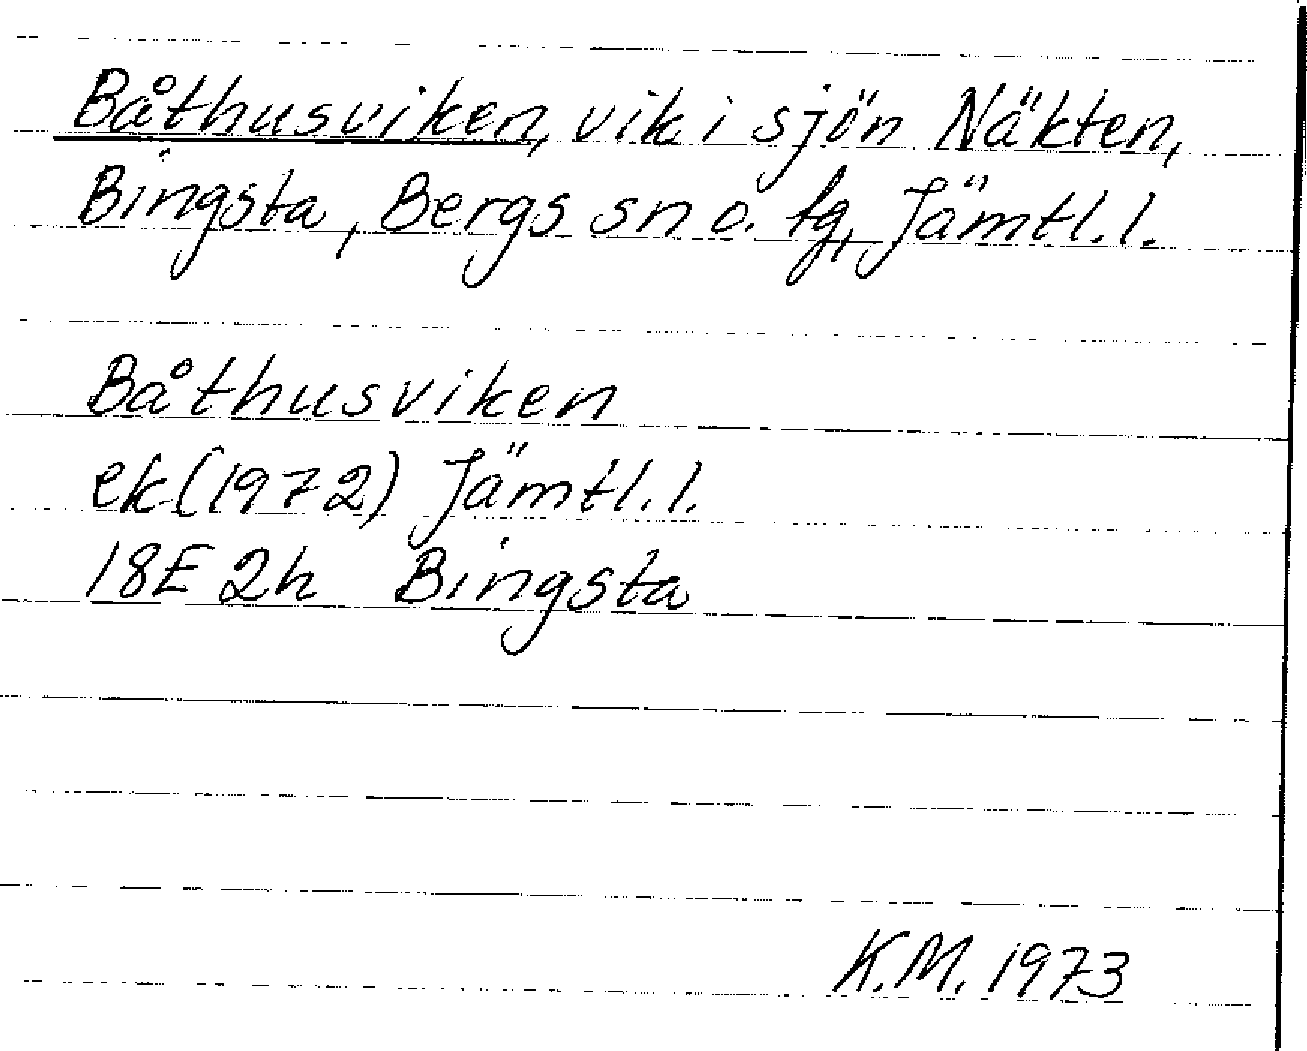 Båthusviken, vik i sjön Näkten,
Bingsta, Bergs sn o. tg, Jämtl. l.
Båthusviken
ek (1972) Jämtl. l.
18E 2h Bingsta
K.M. 1973